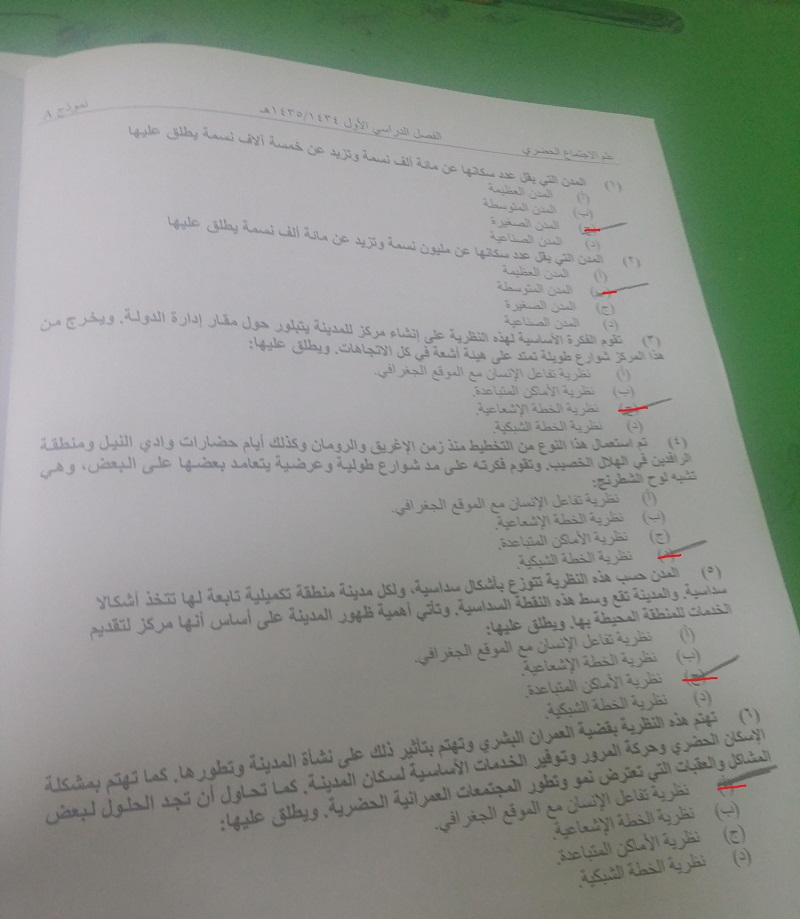 علم الاجتماع الحضري الفصل الدراسي الأول ١٤٣٥/١٤٣٤هـ نموذج A
(١) المدن التي يقل عدد سكانها عن مائة ألف نسمة وتزيد عن خمسة آلاف نسمة يطلق عليها
(أ) المدن العظيمة
(ب) المدن المتوسطة
(ج) المدن الصغيرة
(د) المدن الصناعية
(٢) المدن التي يقل عدد سكانها عن مليون نسمة وتزيد عن مائة ألف نسمة يطلق عليها
(أ) المدن العظيمة
(ب) المدن المتوسطة
(ج) المدن الصغيرة
(د) المدن الصناعية
(٣) تقوم الفكرة الأساسية لهذه النظرية على إنشاء مركز للمدينة يتبلور حول مقار إدارة الدولة. ويخرج من
هذا المركز شوارع طويلة تمتد على هيئة أشعة في كل الاتجاهات. ويطلق عليها:
(أ) نظرية تفاعل الإنسان مع الموقع الجغرافي.
(ب) نظرية الأماكن المتباعدة.
(ج) نظرية الخطة الإشعاعية.
(د) نظرية الخطة الشبكية.
(٤) تم استعمال هذا النوع من التخطيط منذ زمن الإغريق والرومان وكذلك أيام حضارات وادي النيل ومنطقة
الرافدين في الهلال الخصيب. وتقوم فكرته على مد شوارع طولية وعرضية يتعامد بعضها على البعض، وهي
تشبه لوح الشطرنج:
(أ) نظرية تفاعل الإنسان مع الموقع الجغرافي.
(ب) نظرية الخطة الإشعاعية.
(ج) نظرية الأماكن المتباعدة.
(د) نظرية الخطة الشبكية.
(٥) المدن حسب هذه النظرية تتوزع بأشكال سداسية، ولكل مدينة منطقة تكميلية تابعة لها تتخذ أشكالا
سداسية. والمدينة تقع وسط هذه النقطة السداسية. وتأتي أهمية ظهور المدينة على أساس أنها مركز لتقديم
الخدمات للمنطقة المحيطة بها. ويطلق عليها:
(أ) نظرية تفاعل الإنسان مع الموقع الجغرافي.
(ب) نظرية الخطة الإشعاعية.
(ج) نظرية الأماكن المتباعدة.
(د) نظرية الخطة الشبكية.
(٦) تهتم هذه النظرية بقضية العمران البشري وتهتم بتأثير ذلك على نشأة المدينة وتطورها. كما تهتم بمشكلة
الإسكان الحضري وحركة المرور وتوفير الخدمات الأساسية لسكان المدينة. كما تحاول أن تجد الحلول لبعض
المشاكل والعقبات التي تعترض نمو وتطور المجتمعات العمرانية الحضرية. ويطلق عليها:
(أ) نظرية تفاعل الإنسان مع الموقع الجغرافي.
(ب) نظرية الخطة الإشعاعية.
(ج) نظرية الأماكن المتباعدة.
(د) نظرية الخطة الشبكية.